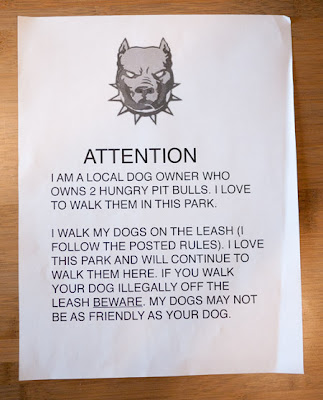 ATTENTION
I AM A LOCAL DOG OWNER WHO
OWNS 2 HUNGRY PIT BULLS. I LOVE
TO WALK THEM IN THIS PARK.
I WALK MY DOGS ON THE LEASH (I
FOLLOW THE POSTED RULES). I LOVE
THIS PARK AND WILL CONTINUE TO
WALK THEM HERE. IF YOU WALK
YOUR DOG ILLEGALLY OFF THE
LEASH BEWARE. MY DOGS MAY NOT
BE AS FRIENDLY AS YOUR DOG.